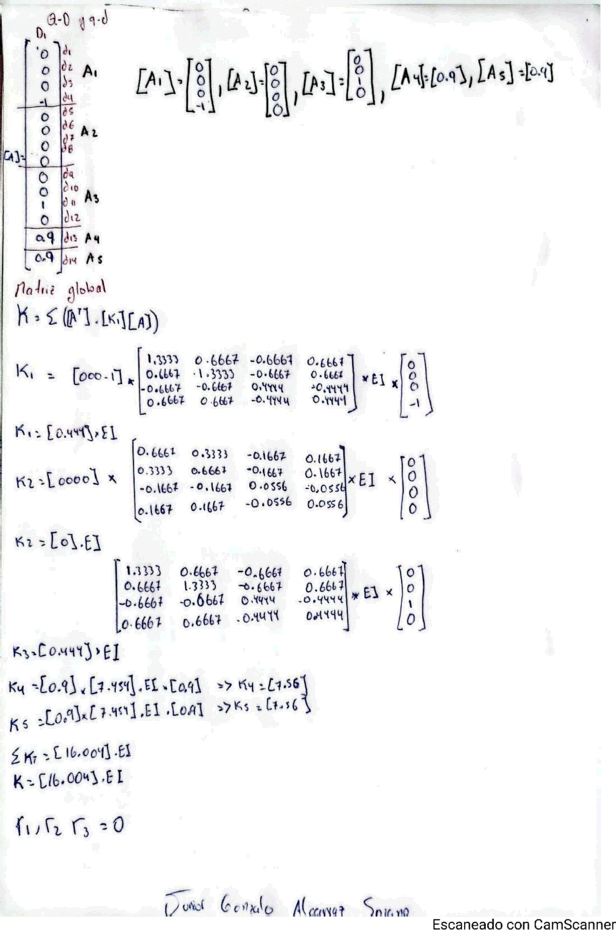 Q-D y q-d
D1
[A]=
0 d1
0 d2 A1
0 d3
-1 d4
0 d5
0 d6 A2
0 d7
0 d8
0 d9
0 d10
1 d11 A3
0 d12
0.9 d13 A4
0.9 d14 A5
[A1]=[0 0 0 -1], [A2]=[0 0 0 0], [A3]=[0 0 1 0], [A4]=[0.9], [A5]=[0.9]
Matriz global
K = Σ ([A^T].[Ki][A])
K1 = [0 0 0 -1] *
1.3333 0.6667 -0.6667 0.6667
0.6667 1.3333 -0.6667 0.6667
-0.6667 -0.6667 0.4444 -0.4444
0.6667 0.6667 -0.4444 0.4444
* EI * [0 0 0 -1]
K1=[0.444]*EI
K2=[0000] ×
0.6667 0.3333 -0.1667 0.1667
0.3333 0.6667 -0.1667 0.1667
-0.1667 -0.1667 0.0556 -0.0556
0.1667 0.1667 -0.0556 0.0556
× EI × [0 0 0 0]
K2=[0].EI
1.3333 0.6667 -0.6667 0.6667
0.6667 1.3333 -0.6667 0.6667
-0.6667 -0.6667 0.4444 -0.4444
0.6667 0.6667 -0.4444 0.4444
* EI × [0 0 1 0]
K3=[0.444]*EI
K4=[0.9]×[7.454].EI.[0.9] => K4=[7.56]
K5=[0.9]×[7.454].EI.[0.9] => K5=[7.56]
ΣKT=[16.004].EI
K=[16.004].EI
r1, r2 r3 = 0
Gonzalo
Escaneado con CamScanner